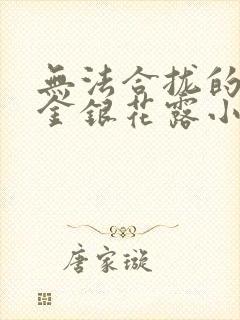 無法合拢的
金銀花露小
唐家璇